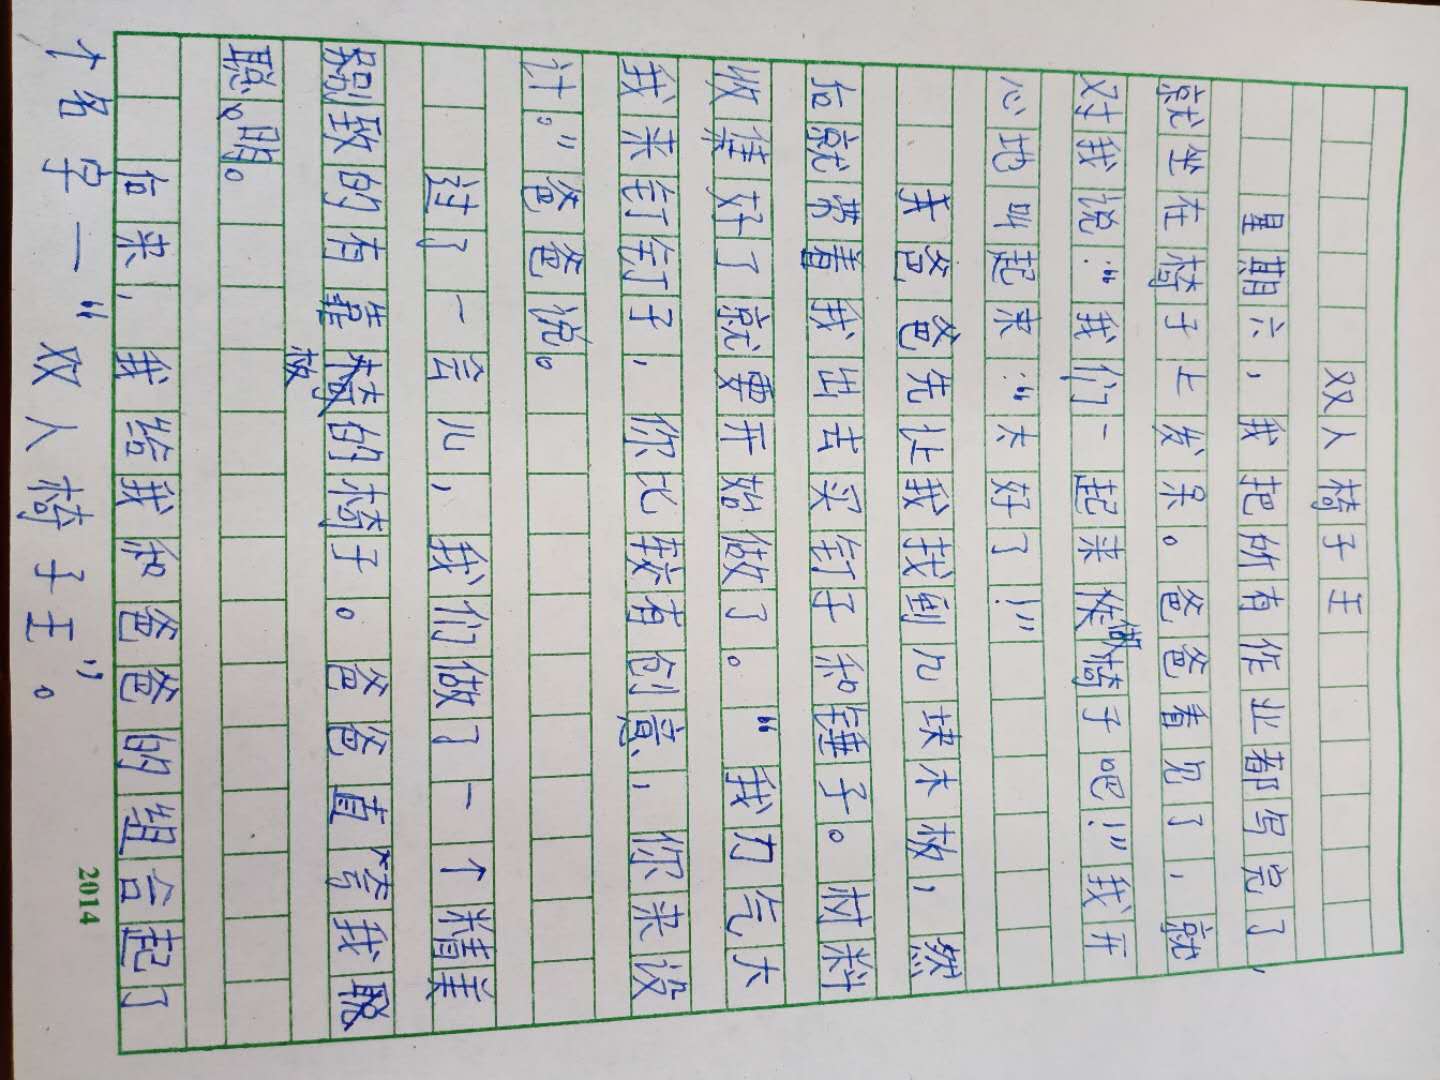 双人椅子王
星期六，我把所有作业都写完了，
就坐在椅子上发呆。爸爸看见了，就
对我说：“我们一起来做椅子吧！”我开
心地叫起来：“太好了！”
我爸爸先让我找到几块木板，然
后就带着我出去买钉子和锤子。材料
收集好了就要开始做了。“我力气大
我来钉钉子，你比较有创意，你来设
计。”爸爸说。
过了一会儿，我们做了一个精美
别致的有靠板的椅子。爸爸直夸我
聪明。
后来，我给我和爸爸的组合起了
个名字一“双人椅子王”。
2014